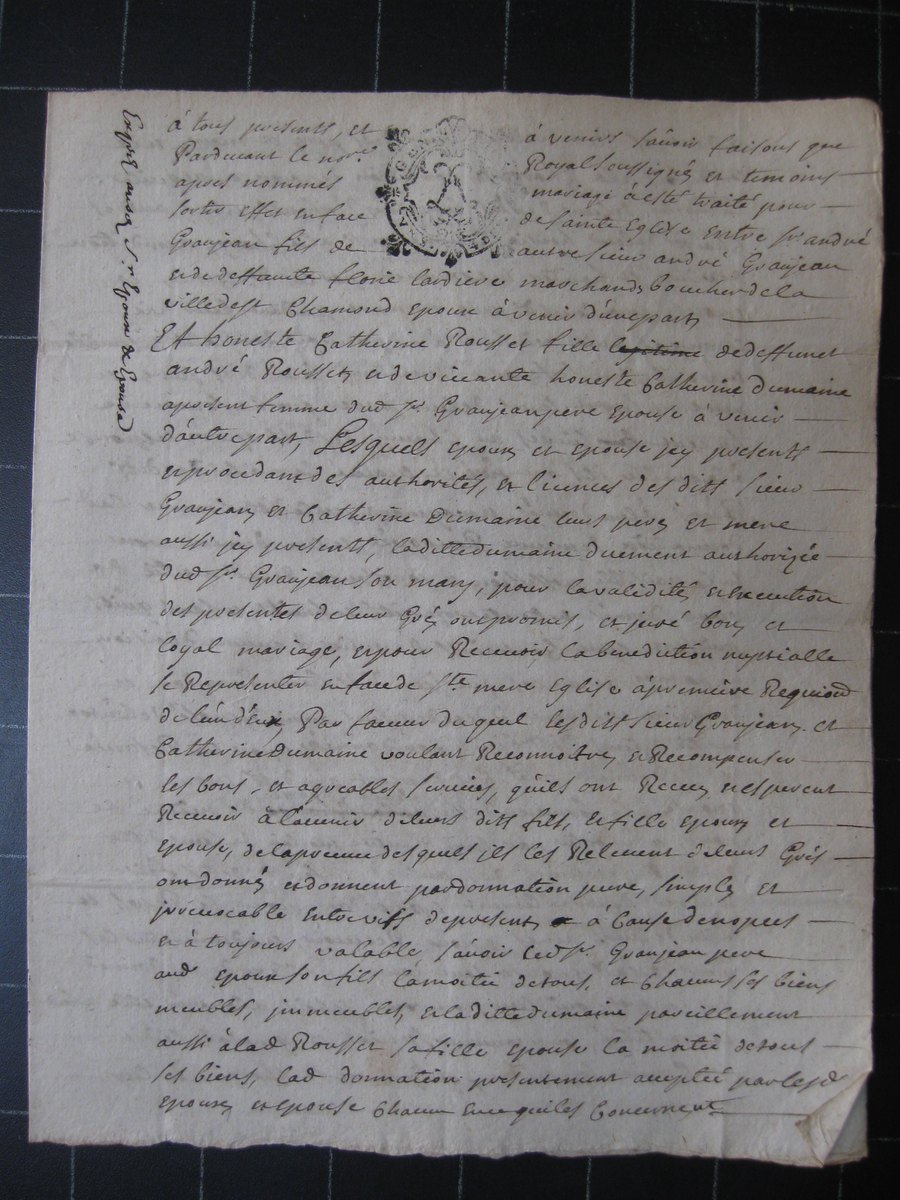 à tous presents, et à venirs sçavoir faisons que
Pardevant le nore. Royal soussigné et temoins
apres nommés mariage à esté traité pour
sortir effet en face de Sainte Eglise Entre sr. andré
Granjean fils de autre sieur andré Granjean
et de deffunte florie Lardiere marchand boucher de la
ville de st Chamond Epoux à venir d'une part,
Et honeste Catherine Rousset fille legitime de deffunct
andré Rousset, et de vivante honeste Catherine Dumaine
apresent femme dud sr. Granjean pere Epouse à venir
d'autre part, Lesquels epoux et epouse jcy presents
et procedant des authorités, et licences des dits sieur
Granjean, et Catherine Dumaine leurs pere, et mere
aussi jcy presents, la ditte dumaine duement authorizée
dud sr. Granjean son mary, pour la validité, et execution
des presentes de leur Gré, ont promis, et juré bon, et
loyal mariage, et pour Recevoir la benediction nuptialle
se Representer en face de Ste. mere Eglise à premiere Requion
de l'un d'eux, Par faveur du quel les dits sieur Granjean, et
Catherine Dumaine voulant Reconnoitre, et Recompenser
les bons, et agreables services, qu'ils ont Receu, et esperent
Recevoir à l'avenir de leurs dits fils, et fille epoux et
epouse, de la preuve des quels ils les Relevent de leurs Grés
ont donné, et donnent par donnation pure, simple, et
jrrevocable entre vifs de present, à cause de nopces
et à toujours valable, sçavoir led sr. Granjean pere
aud epoux son fils la moitié de tous, et chacuns ses biens
meubles, jmmeubles, et la ditte dumaine pareillement
aussi à lad Rousset sa fille epouse la moitié de tous
ses biens, lad donnation presentement acceptée par lesd
epoux, et epouse chacun en ce qui les concernent
Epoux de Epouse